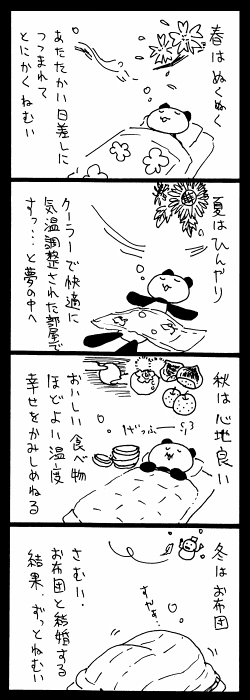 春はぬくぬく
あたたかい日差しに
つつまれて
とにかくねむい
夏はひんやり
クーラーで快適に
気温調整された部屋で
すっ…と夢の中へ
秋は心地良い
げっぷー
おいしい食べ物
ほどよい温度
幸せをかみしめねる
冬はお布団
すやぁ…
さむい！
お布団と結婚する
結果、ずっとねむい